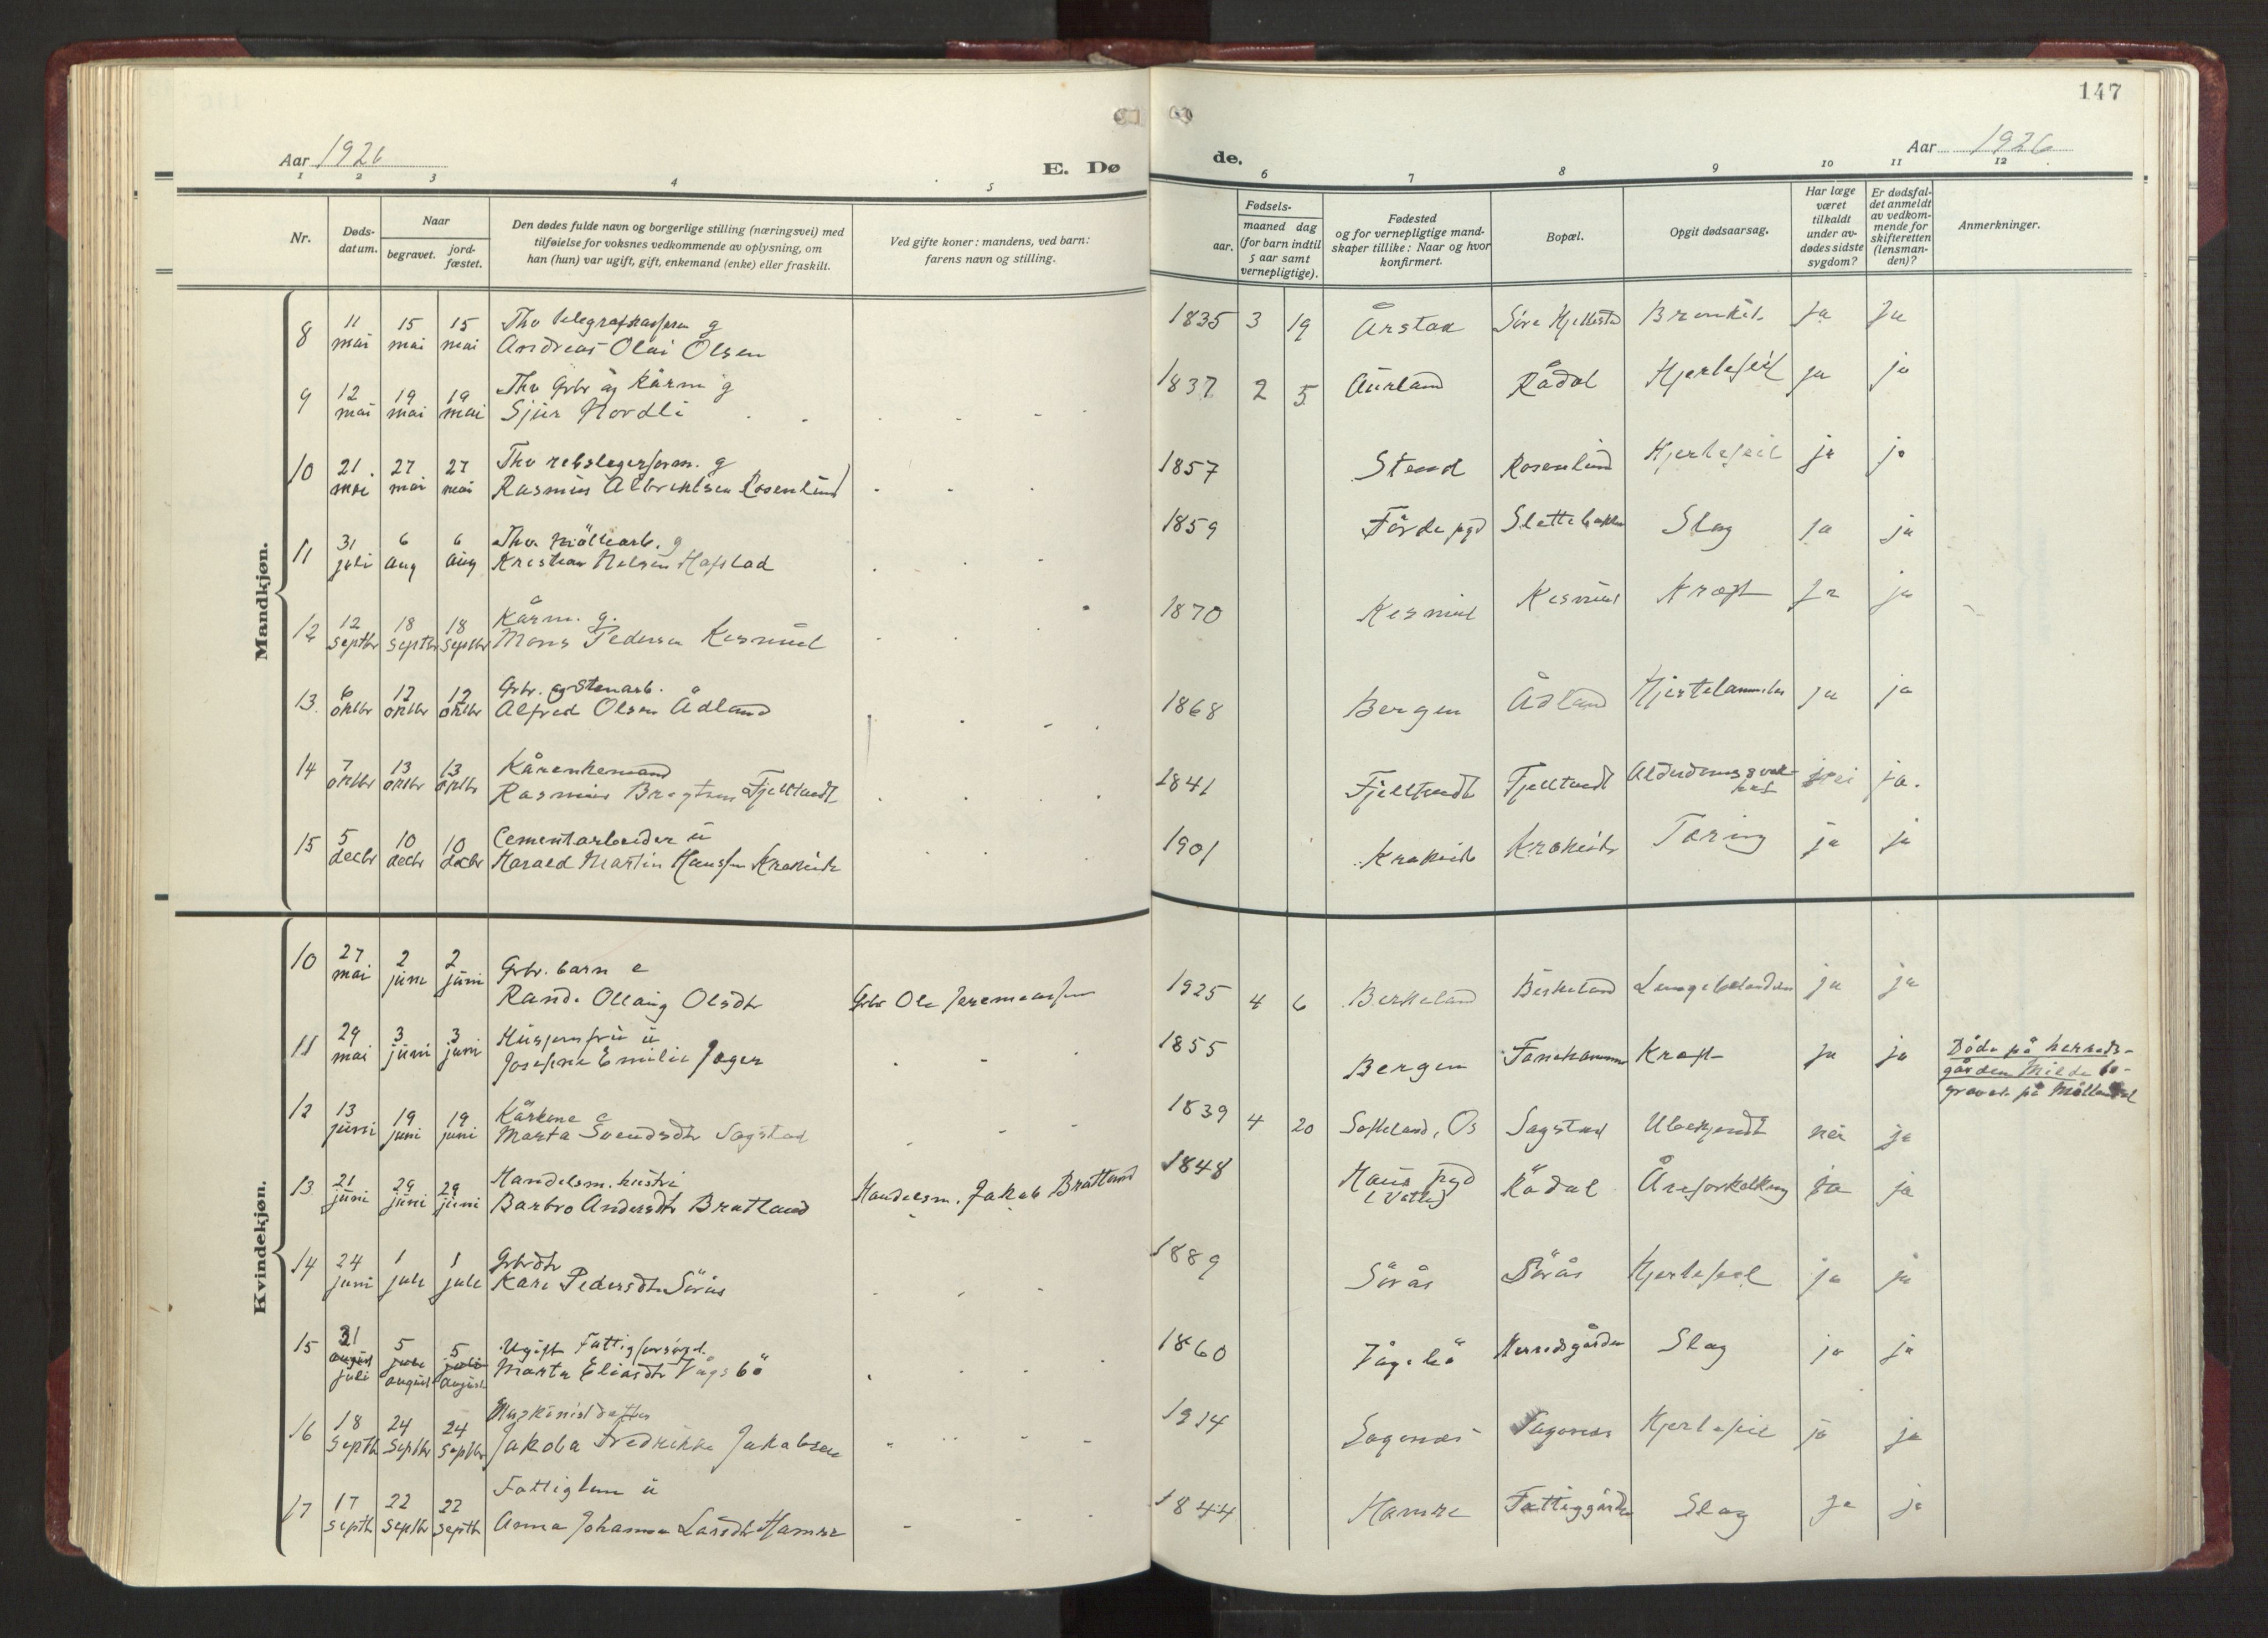 147
Aar 1926
E. Dø
de.
Aar 1926
1 2 3 4 5 6 7 8 9 10 11 12
Nr.
Døds-
datum.
Naar
begravet.
jord-
fæstet.
Den dødes fulde navn og borgerlige stilling (næringsvei) med
tilføielse for voksnes vedkommende av oplysning, om
han (hun) var ugift, gift, enkemand (enke) eller fraskilt.
Ved gifte koner: mandens, ved barn:
farens navn og stilling.
Fødsels-
aar.
maaned dag
(for barn indtil
5 aar samt
vernepligtige).
Fødested
og for vernepligtige mand-
skaper tillike: Naar og hvor
konfirmert.
Bopæl.
Opgit dødsaarsag.
Har læge
været
tilkaldt
under av-
dødes sidste
sygdom?
Er dødsfal-
det anmeldt
av vedkom-
mende for
skifteretten
(lensman-
den)?
Anmerkninger.
Mandkjøn.
8 11 mai 15 mai 15 mai Fhv g
Andreas Olai Olsen
1835 3 19 Årstad Søre Hjellestad Bronkit. Ja Ja
9 12 mai 19 mai 19 mai Fhv Grbr og Kårm g
Sjur Nordli
1837 2 5 Aurland Rådal Hjertefeil ja ja
10 21. mai 27 mai 27 mai Fhv rebslagerform. g
Rasmus Albrektsen Rosenlund
1857 Stend Rosenlund Hjertefeil ja ja
11 31 juli 6 aug 6 aug Fhv. möllearb. g
Kristian Nelsen Hafstad
1859 Förde pgd Slettebakken Slag ja ja
12 12 septbr 18 septbr 18 septbr Kårm. g.
Mons Pedersen
1870 Kræft ja ja
13 6 oktbr 12 oktbr 12 oktbr Grbr. og Stenarb.
Alfred Olsen Ådland
1868 Bergen Ådland Hjertelammelse ja ja
14 7 oktbr 13 oktbr 13 oktbr Kårenkemand
Rasmus Fjelltvedt
1841 Fjelltvedt Fjelltvedt Alderdomssvak-
het nei ja.
15 5 decbr 10 decbr 10 decbr Cementarbeider u
Harald Martin Hansen Krokeide
1901 Krokeide Krokeide Tæring ja ja
Kvindekjøn.
10 27 mai 2 juni 2 juni Grbr. barn e
Randi Ollaug Olsdtr Grbr Ole Jeremiassen
1925 4 6 Birkeland Birkeland Lungebetændelse ja ja
11 29 mai 3 juni 3 juni u
Josefine Emilie Jæger
1855 Bergen Fanehammer Kræft ja ja Döde på herreds-
gården Milde be-
gravet på Möllendal
12 13 juni 19 juni 19 juni Kårkone e
Marta Svendsdtr Sagstad
1839 4 20 Söfteland, Os Sagstad Ubekjendt nei ja
13 21 juni 29 juni 29 juni Handelsm. hustru
Barbro Andersdtr Bratland Handelsm. Jakob Bratland
1848 Haus pgd Rådal Åreforkalkning ja ja
14 24 juni 1 juli 1 juli Grbrdtr
Kari Pedersdtr Sörås
1889 Sörås Sörås Hjertefeil ja ja
15 31 august juli 5 juli august 5 juli august Ugift Fattigforsörget
Marta Eliasdtr Vågsbö
1860 Vågsbö Herredsgården Slag ja ja
16 18 septbr 24 septbr 24 septbr Maskinistdatter
Jakoba Fredrikke Jakobsen
1914 Hjertefeil ja ja
17 17 septbr 22 septbr 22 septbr Fattiglem u
Anna Johanna Larsdtr Hamre
1844 Hamre Fattiggården Slag ja ja